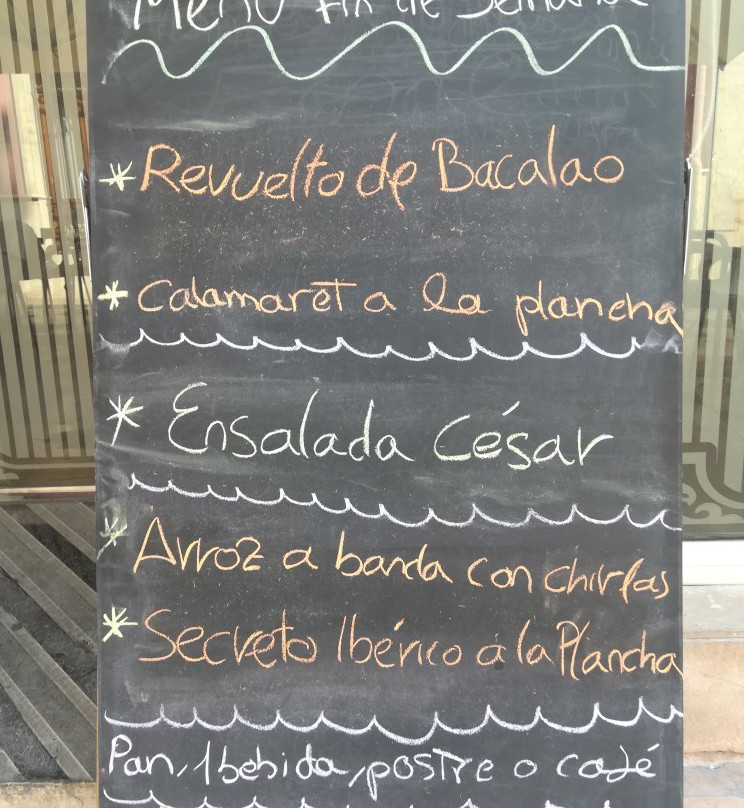 Menú Fin de Semana
* Revuelto de Bacalao
* Calamaret a la plancha
* Ensalada César
* Arroz a banda con chirlas
* Secreto Ibérico a la Plancha
Pan, 1 bebida, postre o café